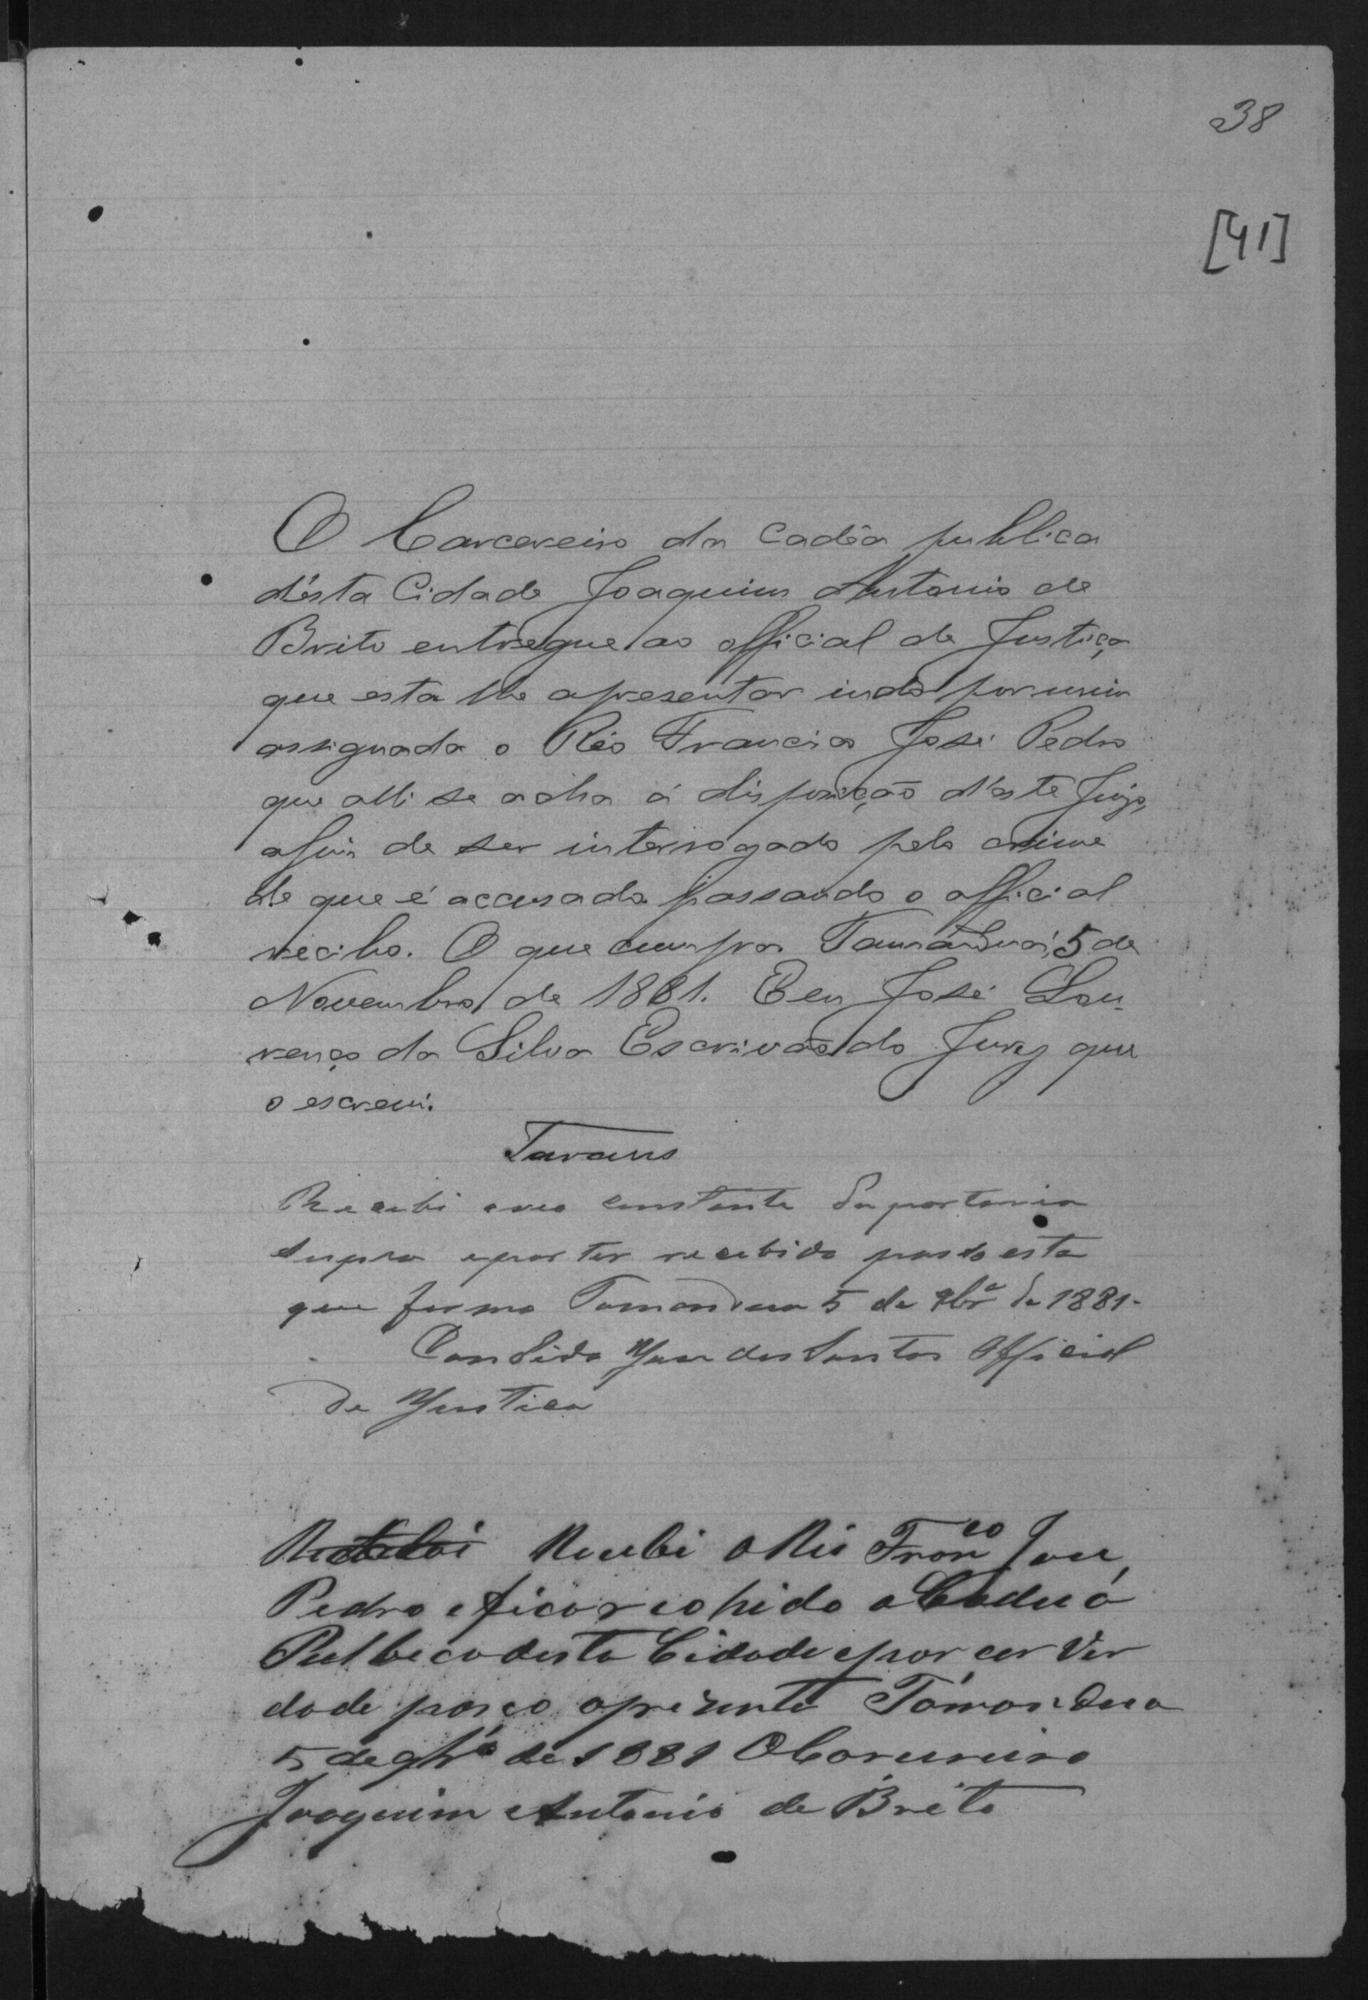 38
[41]
O Carcereiro da Cadêa publica
d'ésta Cidade Joaquim Antonio de
Brito entregue ao official de Justiça
que esta lhe apresentar indo por mim
assignada o Réo Francisco José Pedro
que alli se acha á disposição d'éste Juizo,
afim de ser interrogado pelo crime
de que é accusado passando o official
recibo. O que cumpra Tamanduá, 5 de
Novembro de 1881. Eu José Lou-
renço da Silva Escrivão do Jury que
o escrevi.
Tavares
Recebi oreo constante da portaria
supra epor ter recebido paso esta
que firmo Tamandua 5 de 9br.º de 1881.
Candido Jose dos Santos Official
de Justica
Recebi o Reo Fran.co Jose
Pedro e fica recohido a Cadeia
Pulbica desta Cidade epor cer Ver
dade paço aprezente Tamandua
5 de 9br.º de 1881 O Carcereiro
Joaquim Antonio de Brito